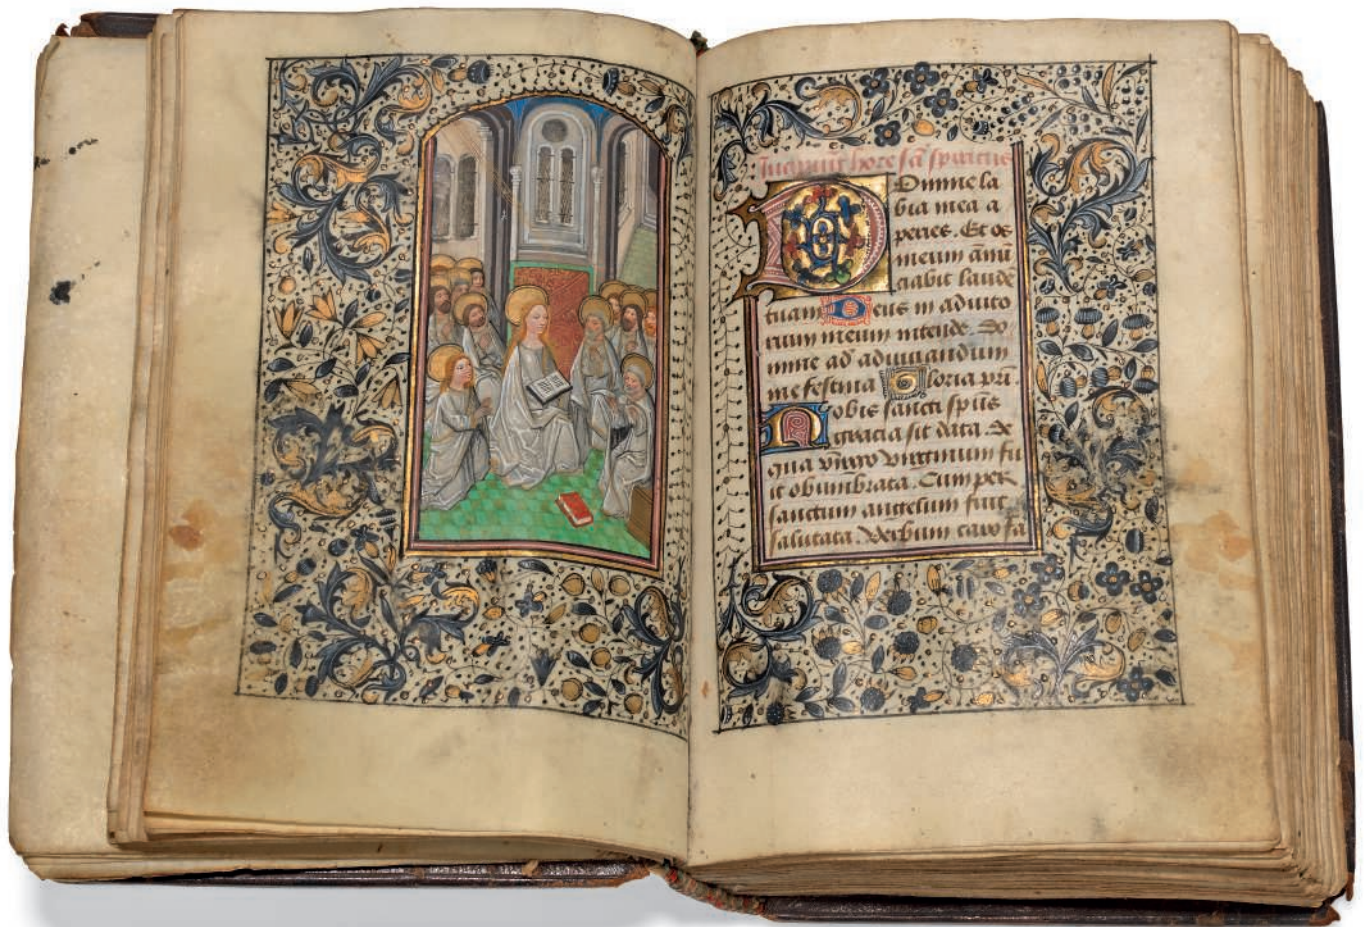 Incipiunt hore sc̄i spiritus
Domine la
bia mea a
peries. Et os
meum ānū
ciabit laudē
tuam Deus in adiuto
rium meum intende. Do
mine ad adiuuandum
me festina Gloria pr̄i.
Nobis sancti sp̄us
gracia sit data De
qua v̄irgo virginum fu
it obumbrata. Cum per
sanctum angelum fuit
salutata. Verbum caro fa